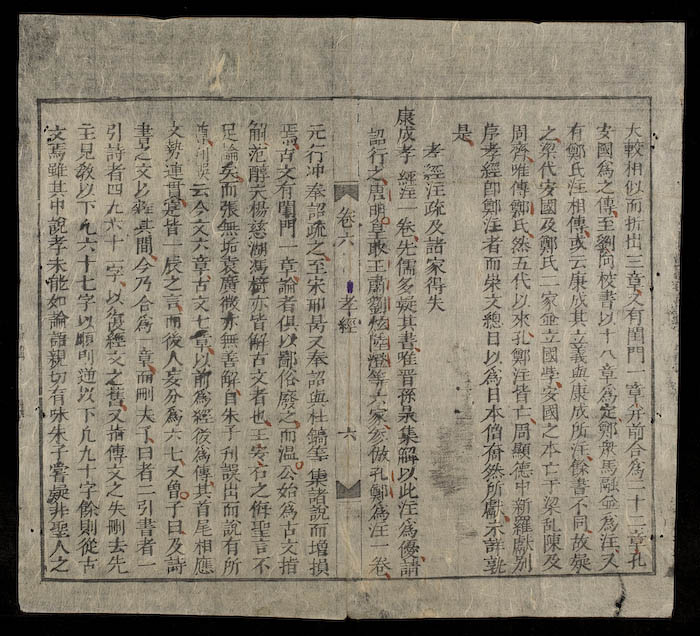 大較相似而折出三章又有閨門一章并前合爲二十二章孔
安國爲之傳至劉向校書以十八章爲定鄭衆馬融並爲注又
有鄭氏注相傳或云康成其立義與康成所注餘書不同故疑
之梁代安國及鄭氏二家並立國學安國之本亡于梁亂陳及
周齊唯傳鄭氏然五代以來孔鄭注皆亡周顯德中新羅獻別
序孝經卽鄭注者而宋文總目以爲日本僧奝然所獻未詳孰
是
孝經注疏及諸家得失
康成孝經注一卷先儒多疑其書唯晉孫㫤集解以此注爲優請
詔行之唐明皇取王肅劉炫陸澄等六家參倣孔鄭爲注一卷
元行冲奉詔疏之至宋邢昺又奉詔與杜鎬等集諸說而增損
焉古文有閨門一章論者俱以鄙俗廢之而溫公始爲古文指
解范醇夫楊慈湖馮椅亦皆解古文者也王安石之侮聖言不
足論矣而張無垢袁廣微亦無善解自朱子刊誤出而說有所
矣云今文六章古文七章以前爲經後爲傳其首尾相應
文勢連貫寔皆一辰之言而後人妄分爲六七又曾子曰及詩
書之文以雜其間今乃合爲一章而刪去子曰者二引書者一
引詩者四凡六十一字以復經文之舊又指傳文之失刪去先
王見教以下凡六十七字以順則逆以下凡九十字餘則從古
文焉雖其中說孝未能如論語親切有味朱子嘗疑非聖人之
卷六
孝經
六